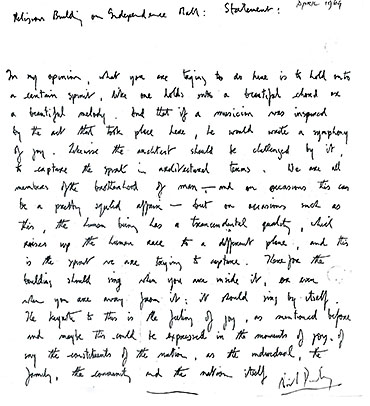 Religious Building on Independence Mall: Statement: April 1969
In my opinion, what you are trying to do here is to hold onto
a certain spirit, like one holds onto a beautiful chord or
a beautiful melody. And that if a musician was inspired
by the act that took place here, he would write a symphony
of joy. Likewise the architect should be challenged by it,
to capture the spirit in architectural terms. We are all
members of the brotherhood of man — and on occasions this can
be a pretty squalid affair — but on occasions such as
this, the human being has a transcendental quality, which
raises up the human race to a different plane, and this
is the spirit we are trying to capture. Therefore the
building should sing when you are inside it, or even
when you are away from it: it should sing by itself.
The keynote to this is the feeling of joy, as mentioned before
and maybe this could be expressed in the movements of joy, of
say the constituents of the nation, as the individual, the
family, the community and the nation itself